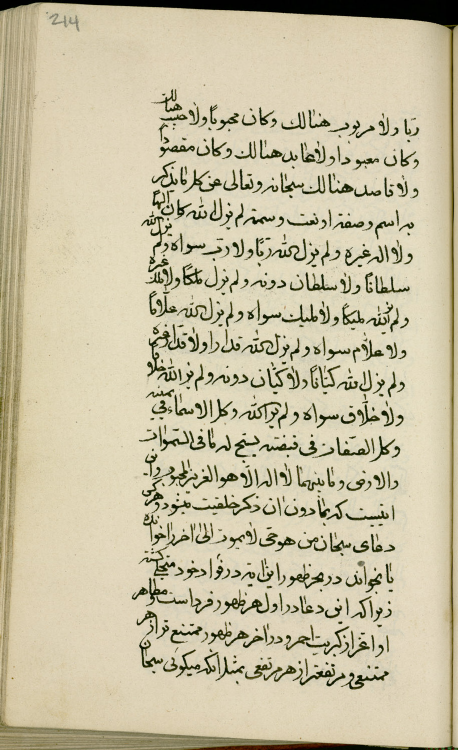 214
ربا ولا مربوب هنالك وكان محبوبا ولا حبيب هنالك
وكان معبودا ولا عابد هنالك وكان مقصودا
ولا قاصد هنالك سبحانه وتعالى عن كل ما يذكر
به اسم وصفة او نعت وسمة لم يزل الله كان الها
ولا اله غيره ولم يزل الله ربا ولا رب سواه ولم يزل الله
سلطانا ولا سلطان دونه ولم يزل ملكا ولا ملك غيره
ولم يزل الله مليكا ولا مليك سواه ولم يزل الله علاما
ولا علام سواه ولم يزل الله قدارا ولا قدار غيره
ولم يزل الله كيانا ولا كيان دونه ولم يزل الله خلاقا
ولا خلاق سواه ولم يزل الله وكل الاسماء في يمينه
وكل الصفات في قبضته يسبح له ما في السموات
والارض وما بينهما لا اله الا هو العزيز المحبوب واين
اينست كه بما دون ان ذكر خلقيت ميشود وهركس
دعاى سبحان من هو حى لا يموت الى اخر را خوانده
يا بخواند در بحر ظهور اين ايه در فؤاد خود متجلى گشته
زيرا كه اين دعا در اول هر ظهور فرداست ومظاهر
او اعز از كبريت احمر ودر اخر هر ظهور ممتنع تر از هر
ممتنعى ومرتفعتر از هر مرتفعى بمثل انكه ميگوئى سبحان